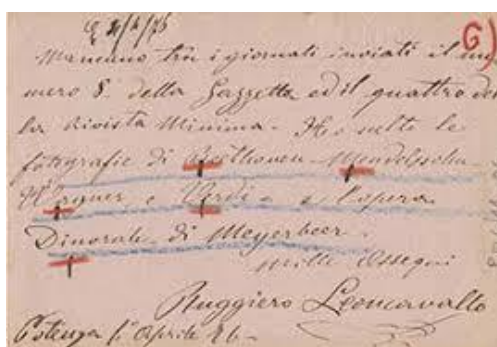 G)
Mancano trà i giornali inviati il nu
mero 8. della Gazzetta ed il quattro del
la Rivista Minima. Ho scelto le
fotografie di Beethoven Mendelsohn
Wagner e Verdi e l'opera
Dinorah di Meyerbeer.
Mille Ossequi
Ruggiero Leoncavallo
Potenza 1° Aprile 76